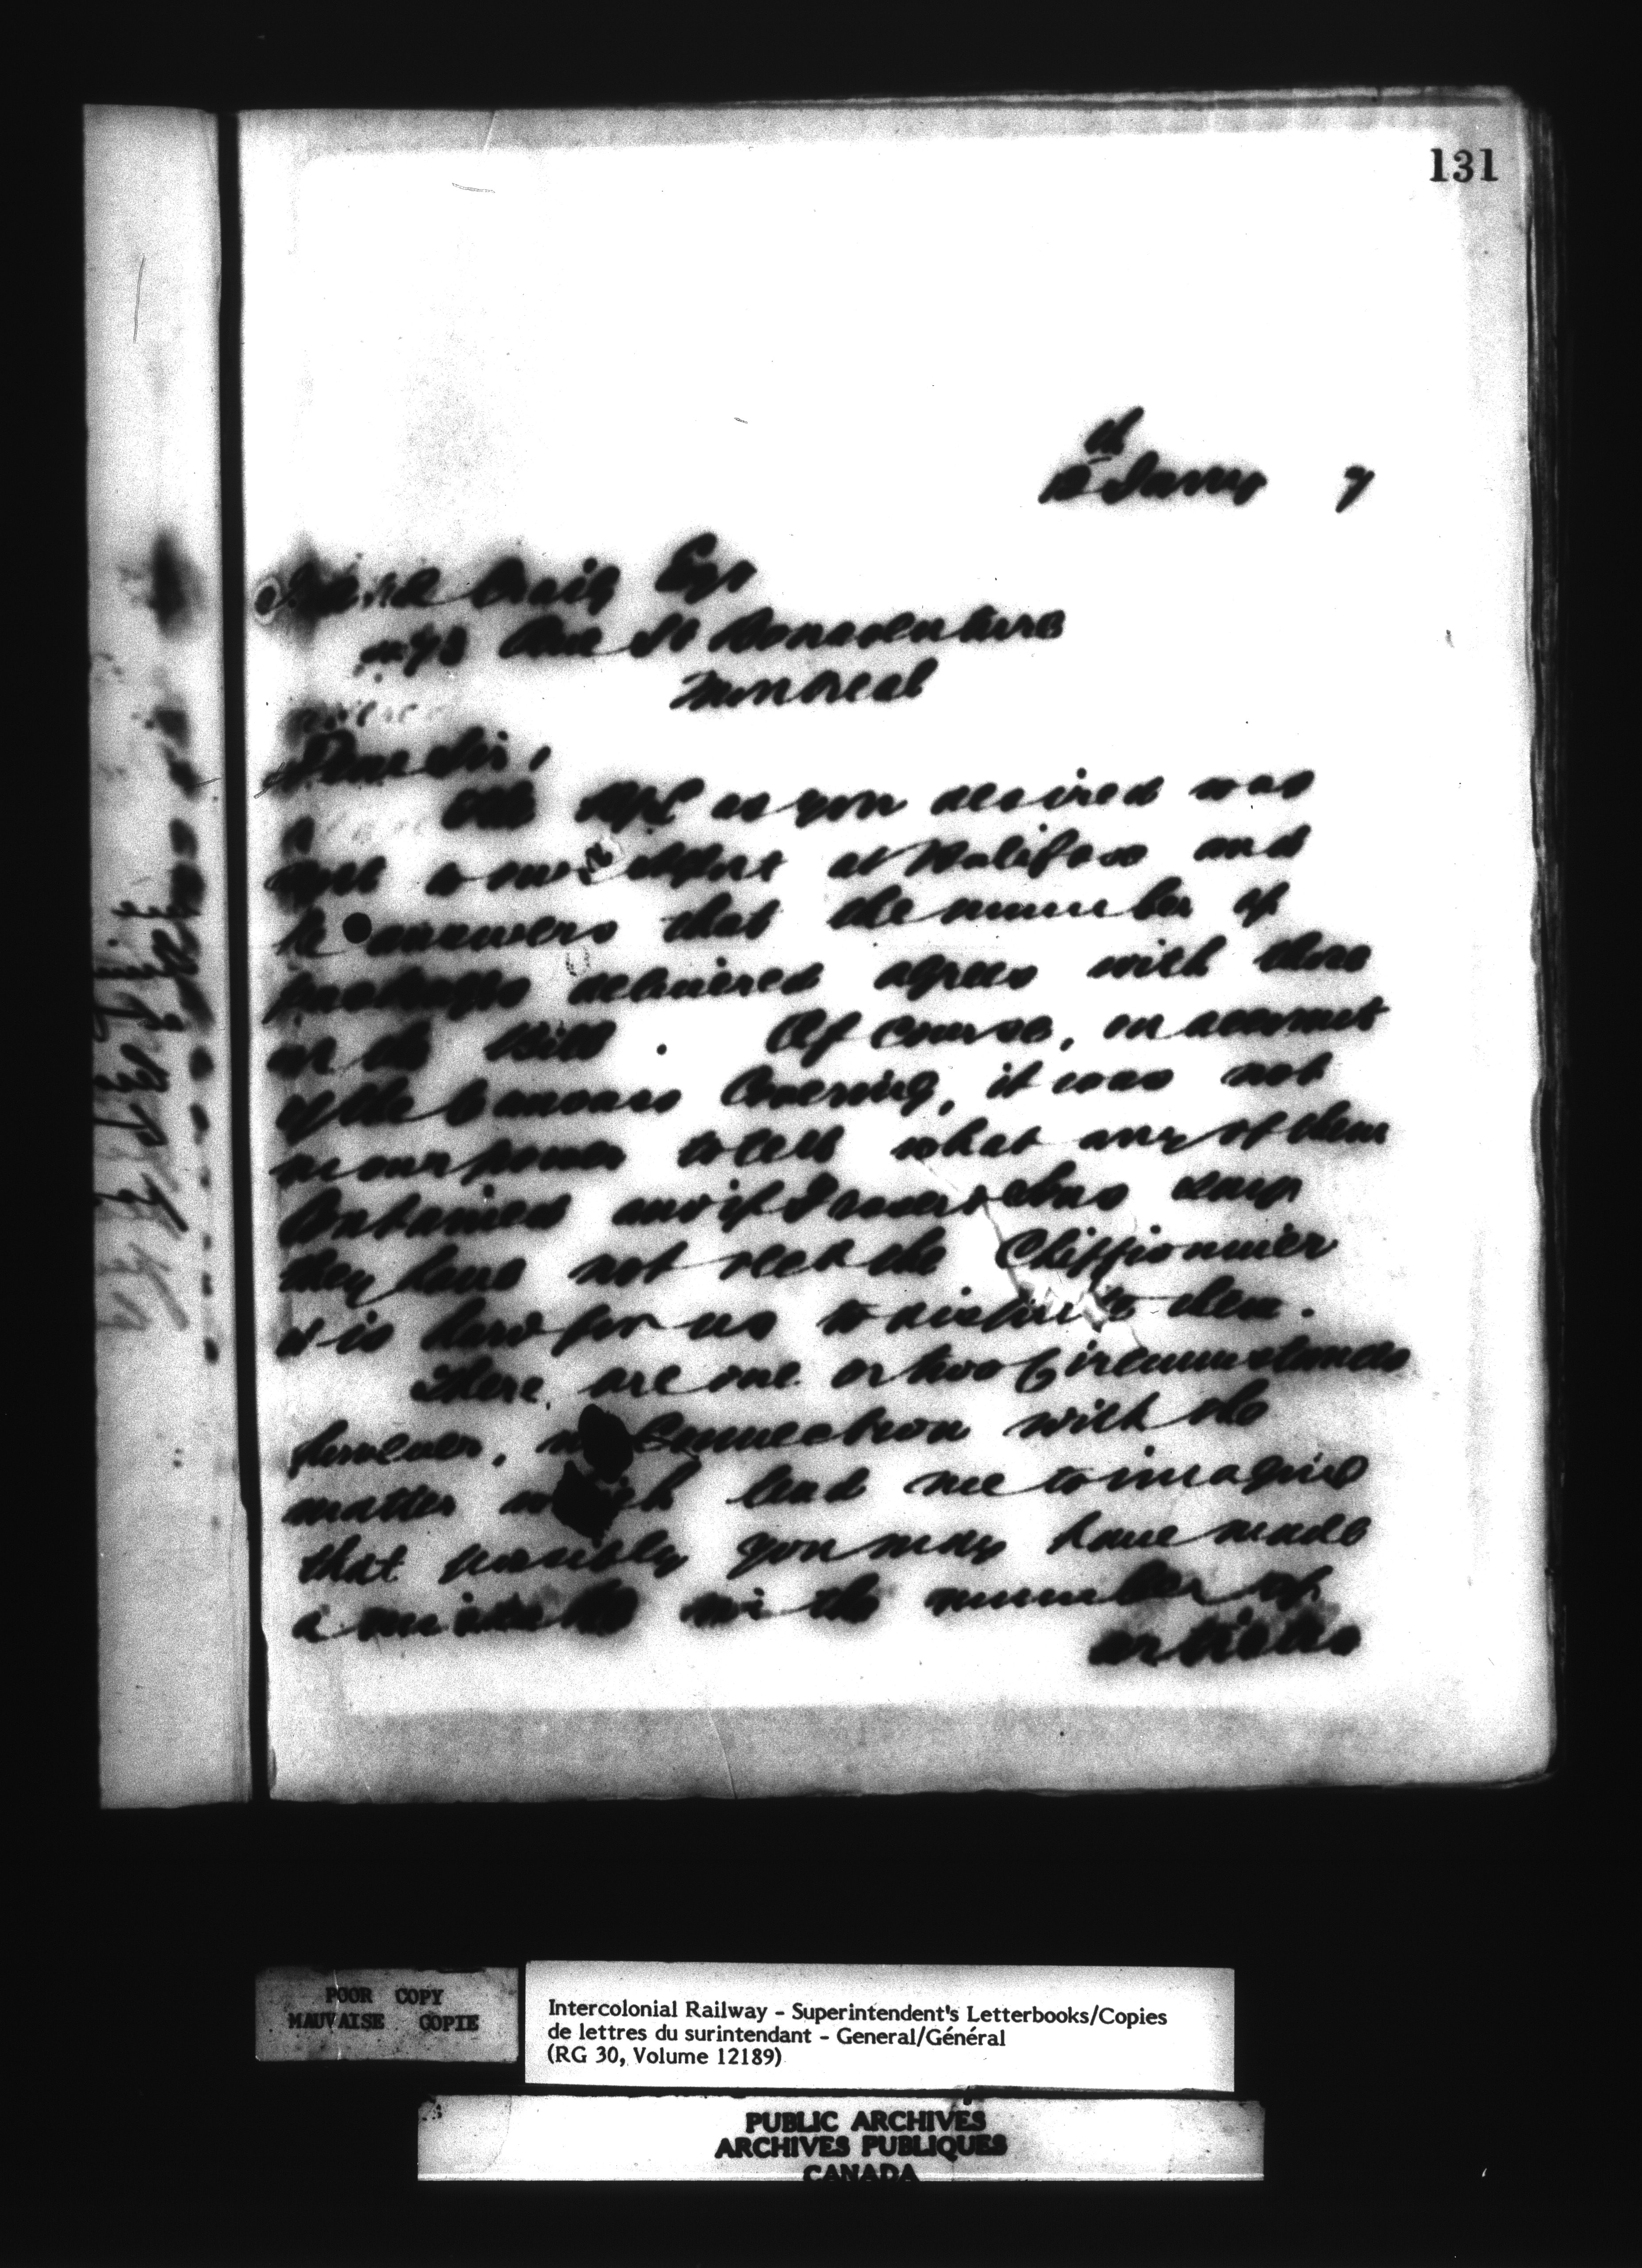 131
th
12 Jany 7
Craig Esqr
Rue St Bonaventure
Montreal
Dear Sir,
as you desired was
at Halifax and
he answers that the number of
packages delivered agrees with those
on the Bill. Of course, on account
of the Canvass Covering, it was not
in our power to tell what any of them
Contained and if
they have not the Chiffionnier
it is hard for us to them.
There are one or two Circumstances
however, in Connection with the
matter which lead me to imagine
that possibly you may have made
a mistake in the number of
articles
POOR COPY
MAUVAISE COPIE
Intercolonial Railway - Superintendent's Letterbooks/Copies
de lettres du surintendant - General/Général
(RG 30, Volume 12189)
PUBLIC ARCHIVES
ARCHIVES PUBLIQUES
CANADA